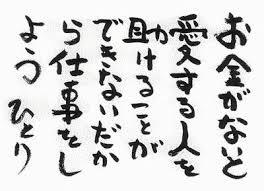 お金がないと
愛する人を
助けることが
できないだか
ら仕事をし
よう ひとり